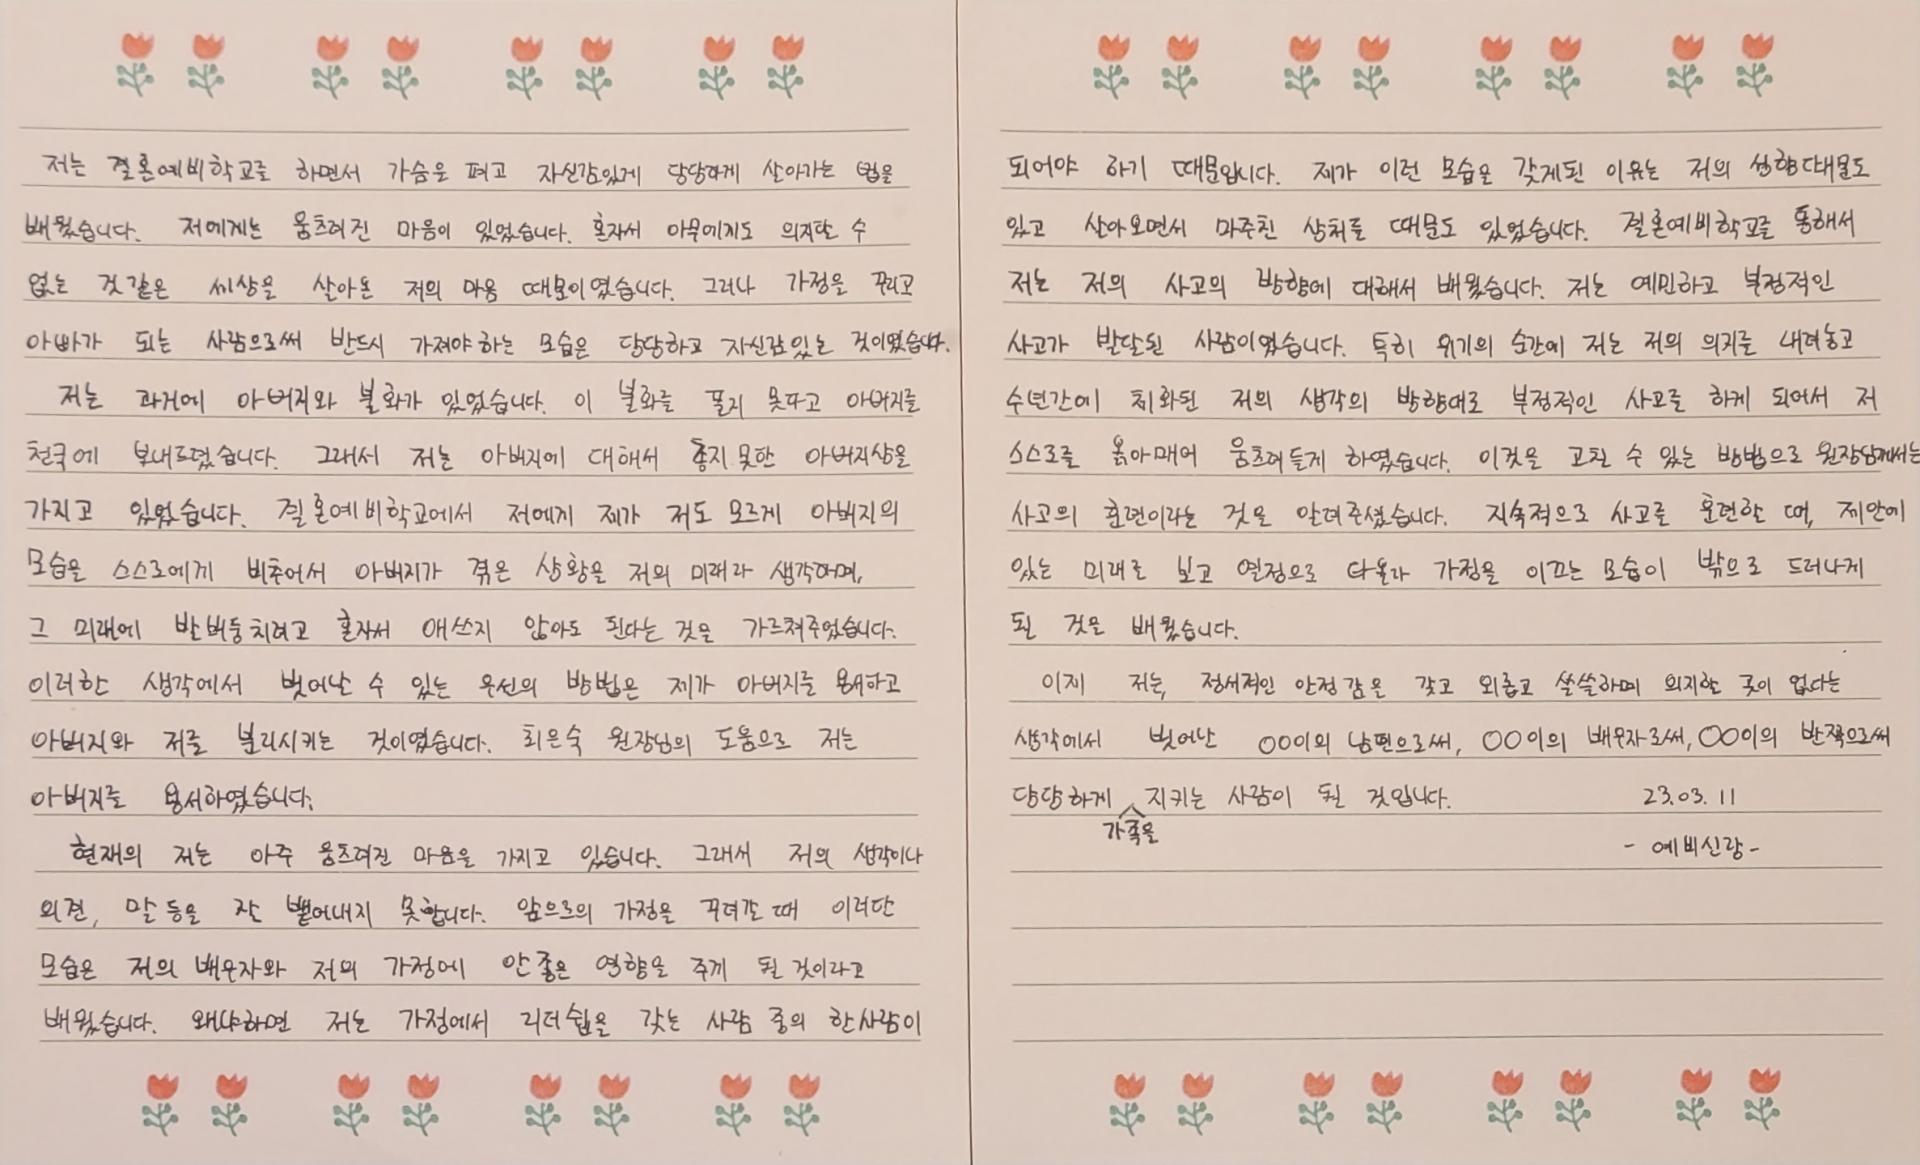 저는 결혼예비학교를 하면서 가슴을 펴고 자신감있게 당당하게 살아가는 법을
배웠습니다. 저에게는 움츠려진 마음이 있었습니다. 혼자서 아무에게도 의지할 수
없는 것같은 세상을 살아온 저의 마음 때문이었습니다. 그러나 가정을 꾸리고
아빠가 되는 사람으로써 반드시 가져야하는 모습은 당당하고 자신감있는 것이였습니다.
저는 과거에 아버지와 불화가 있었습니다. 이 불화를 풀지 못하고 아버지를
천국에 보내드렸습니다. 그래서 저는 아버지에 대해서 좋지못한 아버지상을
가지고 있었습니다. 결혼예비학교에서 저에게 제가 저도 모르게 아버지의
모습을 스스로에게 비추어서 아버지가 겪은 상황을 저의 미래라 생각하며,
그 미래에 발버둥치려고 혼자서 애쓰지 않아도 된다는 것을 가르쳐주었습니다.
이러한 생각에서 벗어날 수 있는 우선의 방법은 제가 아버지를 용서하고
아버지와 저를 분리시키는 것이였습니다. 최은숙 원장님의 도움으로 저는
아버지를 용서하였습니다.
현재의 저는 아주 움츠려진 마음을 가지고 있습니다. 그래서 저의 생각이나
의견, 말 등을 잘 뱉어내지 못합니다. 앞으로의 가정을 꾸려갈 때 이러한
모습은 저의 배우자와 저의 가정에 안좋은 영향을 주게 될 것이라고
배웠습니다. 왜냐하면 저는 가정에서 리더쉽을 갖는 사람 중의 한사람이
되어야 하기 때문입니다. 제가 이런 모습을 갖게된 이유는 저의 성향때문도
있고 살아오면서 마주친 상처들 때문도 있었습니다. 결혼예비학교를 통해서
저는 저의 사고의 방향에 대해서 배웠습니다. 저는 예민하고 부정적인
사고가 발달된 사람이었습니다. 특히 위기의 순간에 저는 저의 의지를 내려놓고
수년간에 체화된 저의 생각의 방향대로 부정적인 사고를 하게 되어서 저
스스로를 옭아매어 움츠려들게 하였습니다. 이것을 고칠 수 있는 방법으로 원장님께서는
사고의 훈련이라는 것을 알려주셨습니다. 지속적으로 사고를 훈련할 때, 제안에
있는 미래를 보고 열정으로 타올라 가정을 이끄는 모습이 밖으로 드러나게
될 것을 배웠습니다.
이제 저는, 정서적인 안정감을 갖고 외롭고 쓸쓸하며 의지할 곳이 없다는
생각에서 벗어난 OO이의 남편으로써, OO이의 배우자로써, OO이의 반쪽으로써
당당하게 가족을 지키는 사람이 될 것입니다. 23.03.11
- 예비신랑 -